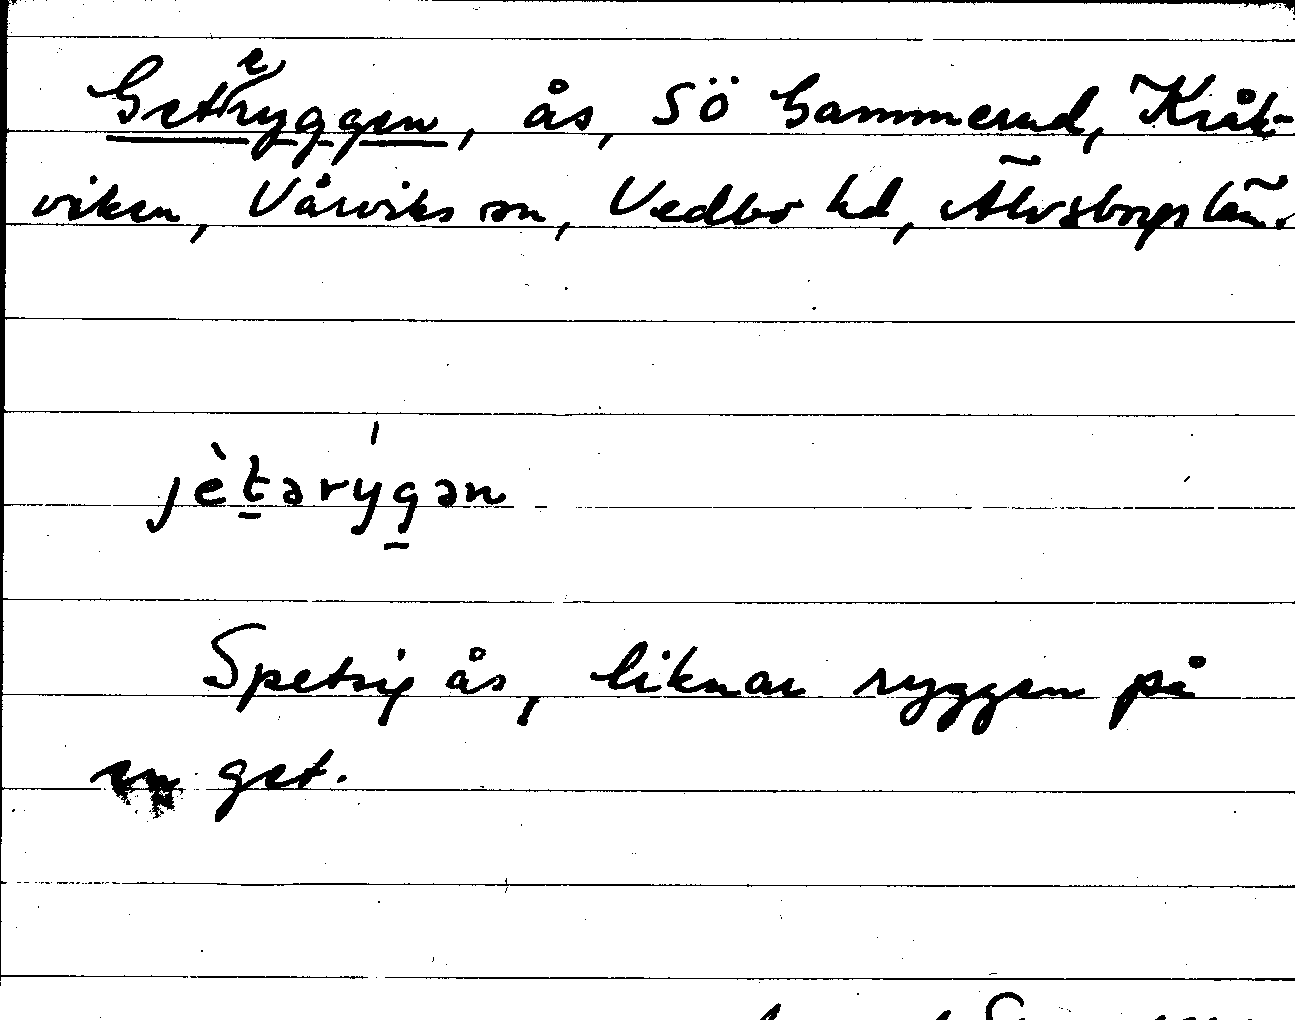 Geteryggen, ås, SÖ Gammerud, Kråk-
viken, Vårviks sn, Vedbo hd, Älvsborgs län.
jètərýgən
Spetsig ås, liknar ryggen på
en get.